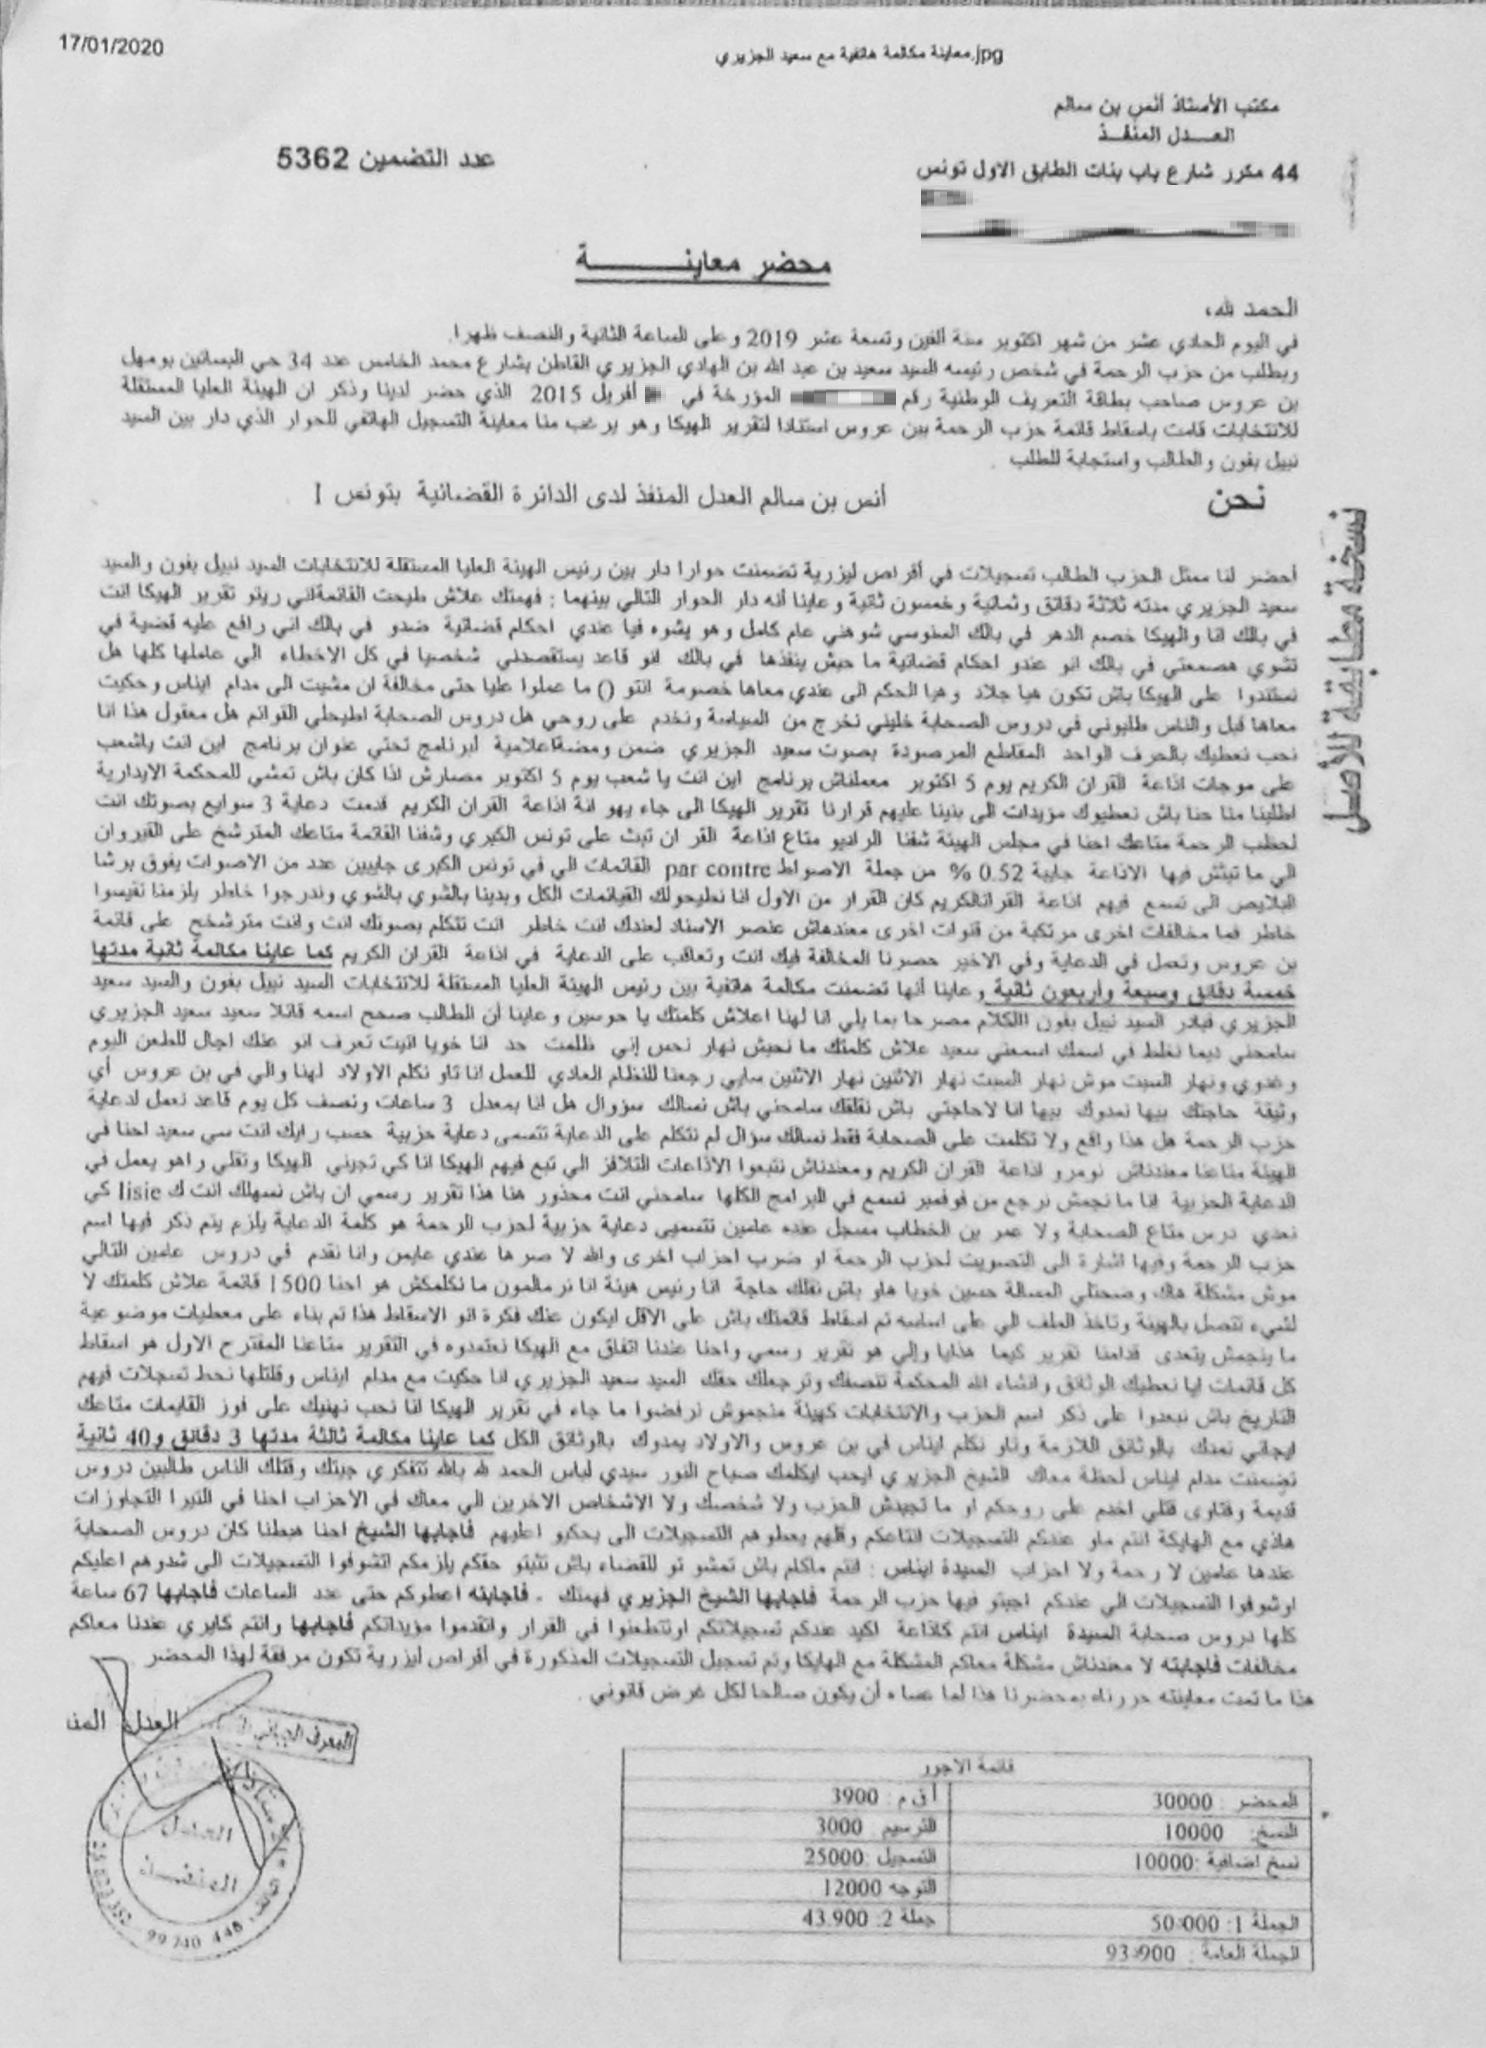 17/01/2020
معاينة مكالمة هاتفية مع سعيد الجزيري.jpg
مكتب الأستاذ أنس بن سالم
العـــدل المنفــذ
44 مكرر شارع باب بنات الطابق الاول تونس
عدد التضمين 5362
محضر معاينـــــــة
الحمد لله،
في اليوم الحادي عشر من شهر اكتوبر سنة ألفين وتسعة عشر 2019 وعلى الساعة الثانية والنصف ظهرا.
وبطلب من حزب الرحمة في شخص رئيسه السيد سعيد بن عبد الله بن الهادي الجزيري القاطن بشارع محمد الخامس عدد 34 حي البساتين بومهل
بن عروس صاحب بطاقة التعريف الوطنية رقم المؤرخة في أفريل 2015 الذي حضر لدينا وذكر ان الهيئة العليا المستقلة
للانتخابات قامت باسقاط قائمة حزب الرحمة ببن عروس استنادا لتقرير الهيكا وهو يرغب منا معاينة التسجيل الهاتفي للحوار الذي دار بين السيد
نبيل بفون والطالب واستجابة للطلب .
نحن أنس بن سالم العدل المنفذ لدى الدائرة القضائية بتونس 1
أحضر لنا ممثل الحزب الطالب تسجيلات في أقراص ليزرية تضمنت حوارا دار بين رئيس الهيئة العليا المستقلة للانتخابات السيد نبيل بفون والسيد
سعيد الجزيري مدته ثلاثة دقائق وثمانية وخمسون ثانية وعاينا أنه دار الحوار التالي بينهما : فهمتك علاش طيحت القائمةلني ريتو تقرير الهيكا انت
في بالك انا والهيكا خصم الدهر في بالك السنوسي شوهني عام كامل وهو يشوه فيا عندي احكام قضائية ضدو في بالك اني رافع عليه قضية في
تشوي هصمعتي في بالك انو عندو احكام قضائية ما حبش ينفذها في بالك انو قاعد يستقصدني شخصيا في كل الاخطاء الي عاملها كلها هل
تستندوا على الهيكا باش تكون هيا جلاد وهيا الحكم الى عندي معاها خصومة انتو () ما عملوا عليا حتى مخالفة ان مشيت الى مدام ايناس وحكيت
معاها قبل والناس طلبوني في دروس الصحابة خليني نخرج من السياسة ونخدم على روحي هل دروس الصحابة اطيحلي القوائم هل معقول هذا انا
نحب نعطيك بالحرف الواحد المقاطع المرصودة بصوت سعيد الجزيري ضمن ومضةاعلامية لبرنامج تحتي عنوان برنامج اين انت ياشعب
على موجات اذاعة القران الكريم يوم 5 اكتوبر معملناش برنامج اين انت يا شعب يوم 5 اكتوبر مصارش اذا كان باش تمشي للمحكمة الايدارية
اطلبنا منا حنا باش نعطيوك مزيدات الى بنينا عليهم قرارنا تقرير الهيكا الى جاء يهو انة اذاعة القران الكريم قدمت دعاية 3 سوايع بصوتك انت
لحظب الرحمة متاعك احنا في مجلس الهيئة شفنا الراديو متاع اذاعة القر ان تبث على تونس الكبري وشفنا القائمة متاعك المترشخ على القيروان
الي ما تبثش فيها الاذاعة جايبة 0.52 % من جملة الاصواط par contre القائمات الي في تونس الكبرى جايبين عدد من الاصوات يفوق برشا
البلايص الى تسمع فيهم اذاعة القرانالكريم كان القرار من الاول انا نطيحولك القيائمات الكل وبدينا بالشوي بالشوي وندرجوا خاطر يلزمنا نقيسوا
خاطر فما مخالفات اخرى مرتكبة من قنوات اخرى معندهاش عنصر الاسناد لعندك انت خاطر انت تتكلم بصوتك انت وانت مترشخ على قائمة
بن عروس وتعمل في الدعاية وفي الاخير حصرنا المخالفة فيك انت وتعاقب على الدعاية في اذاعة القران الكريم كما عاينا مكالمة ثانية مدتها
خمسة دقائق وسبعة وأربعون ثانية وعاينا أنها تضمنت مكالمة هاتفية بين رئيس الهيئة العليا المستقلة للانتخابات السيد نبيل بفون والسيد سعيد
الجزيري فبادر السيد نبيل بفون الكلام مصرحا بما يلي انا لهنا اعلاش كلمتك يا حوسين وعاينا أن الطالب صحح اسمه قائلا سعيد سعيد الجزيري
سامحني ديما نغلط في اسمك اسمعني سعيد علاش كلمتك ما نحبش نهار نحس إني ظلمت حد انا خويا انيت تعرف انو عنك اجال للطعن اليوم
وغدوي ونهار السبت موش نهار السبت نهار الاثنين نهار الاثنين سايي رجعنا للنظام العادي للعمل انا تاو نكلم الاولاد لهنا والي في بن عروس أي
وثيقة حاجتك بيها نمدوك بيها انا لاحاجتي باش نقلقك سامحني باش نسالك سؤوال هل انا بمعدل 3 ساعات ونصف كل يوم قاعد نعمل لدعاية
حزب الرحمة هل هذا واقع ولا تكلمت على الصحابة فقط نسالك سؤال لم نتكلم على الدعاية تتسمى دعاية حزبية حسب رايك انت سي سعيد احنا في
الهيئة متاعنا معندناش نومرو اذاعة القران الكريم ومعندناش نتبعوا الاذاعات التلافز الي تبع فيهم الهيكا انا كي تجيني الهيكا وتقلي راهو يعمل في
الدعاية الحزبية انا ما نجمش نرجع من فوفمبر نسمع في البرامج الكلها سامحني انت محذور هنا هذا تقرير رسمي ان باش نسهلك انت ك lisie كي
نعدي درس متاع الصحابة ولا عمر بن الخطاب مسجل عنده عامين تتسميى دعاية حزبية لحزب الرحمة هو كلمة الدعاية يلزم يتم ذكر فيها اسم
حزب الرحمة وفيها اشارة الى التصويت لحزب الرحمة او ضرب احزاب اخرى والله لا صر ها عندي عايمن وانا نقدم في دروس عامين التالي
موش مشكلة هاك وضحتلي المسالة حسين خويا هاو باش نقلك حاجة انا رئيس هيئة انا نرمالمون ما نكلمكش هو احنا 1500 قائمة علاش كلمتك لا
لشيء تتصل بالهيئة وتاخذ الملف الي على اساسه تم اسقاط قائمتك باش على الاقل ايكون عنك فكرة انو الاسقاط هذا تم بناء على معطيات موضوعية
ما ينجمش يتعدى قدامنا تقرير كيما هذايا وإلي هو تقرير رسمي واحنا عندنا اتفاق مع الهيكا نعتمدوه في التقرير متاعنا المقترح الاول هو اسقاط
كل قائمات ايا نعطيك الوثائق وانشاء الله المحكمة تنصفك وترجعلك حقك السيد سعيد الجزيري انا حكيت مع مدام ايناس وقلتلها نحط تسجلات فيهم
التاريخ باش نبعدوا على ذكر اسم الحزب والانتخابات كهيئة منجموش نرفضوا ما جاء في تقرير الهيكا انا نحب نهنيك على فوز القايمات متاعك
ايجاني نمدك بالوثائق اللازمة وتاو نكلم ايناس في بن عروس والاولاد يمدوك بالوثائق الكل كما عاينا مكالمة ثالثة مدتها 3 دقائق و40 ثانية
تضمنت مدام ايناس لحظة معاك الشيخ الجزيري ايحب ايكلمك صباح النور سيدي لباس الحمد لله بالله تتفكري جيتك وقتلك الناس طالبين دروس
قديمة وفتاوى قتلي اخدم على روحكم او ما تجيبش الحزب ولا شخصك ولا الاشخاص الاخرين الي معاك في الاحزاب احنا في التيرا التجاوزات
هاذي مع الهايكة انتم ماو عندكم التسجيلات انتاعكم وقلهم يعطوهم التسجيلات الى يحكيو اعليهم فاجابها الشيخ احنا هبطنا كان دروس الصحابة
عندها عامين لا رحمة ولا احزاب السيدة ايناس : انتم ماكلم باش تمشو تو للقضاء باش تثبتو حقكم يلزمكم اتشوفوا التسجيلات الى شدوهم اعليكم
اوشوفوا التسجيلات الي عندكم اجبتو فيها حزب الرحمة فاجابها الشيخ الجزيري فهمتك . فاجابته اعطوكم حتى عدد الساعات فاجابها 67 ساعة
كلها دروس صحابة السيدة ايناس انتم كاذاعة اكيد عندكم تسجيلاتكم اوتتطعنوا في القرار واتقدموا مؤيداتكم فاجابها وانتم كايري عندنا معاكم
مخالفات فاجابته لا معندناش مشكلة معاكم المشكلة مع الهايكا وتم تسجيل التسجيلات المذكورة في أقراص ليزرية تكون مرفقة لهذا المحضر .
هذا ما تمت معاينته حررناه بمحضرنا هذا لما عساه أن يكون صالحا لكل غرض قانوني .
نسخة مطابقة للأصل
العدل المنف
المعرف الجبائي
العدل
المنفذ
99 740 448
قائمة الاجور
المحضر : 30000 أ ق م : 3900
النسخ: 10000 الترسيم : 3000
نسخ اضافية :10000 التسجيل :25000
التوجه 12000
الجملة 1: 50.000 جملة 2: 43.900
الجملة العامة : 93.900